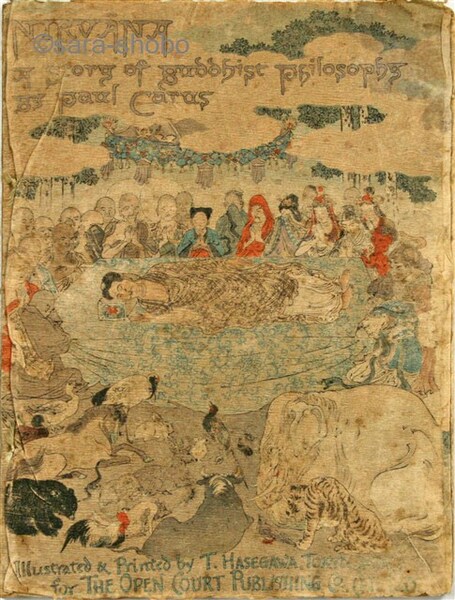 NIRVANA
©sara-shobo
A Story of Buddhist Philosophy
By Paul Carus
Illustrated & Printed by T. HASEGAWA, TOKYO
for THE OPEN COURT PUBLISHING CO.